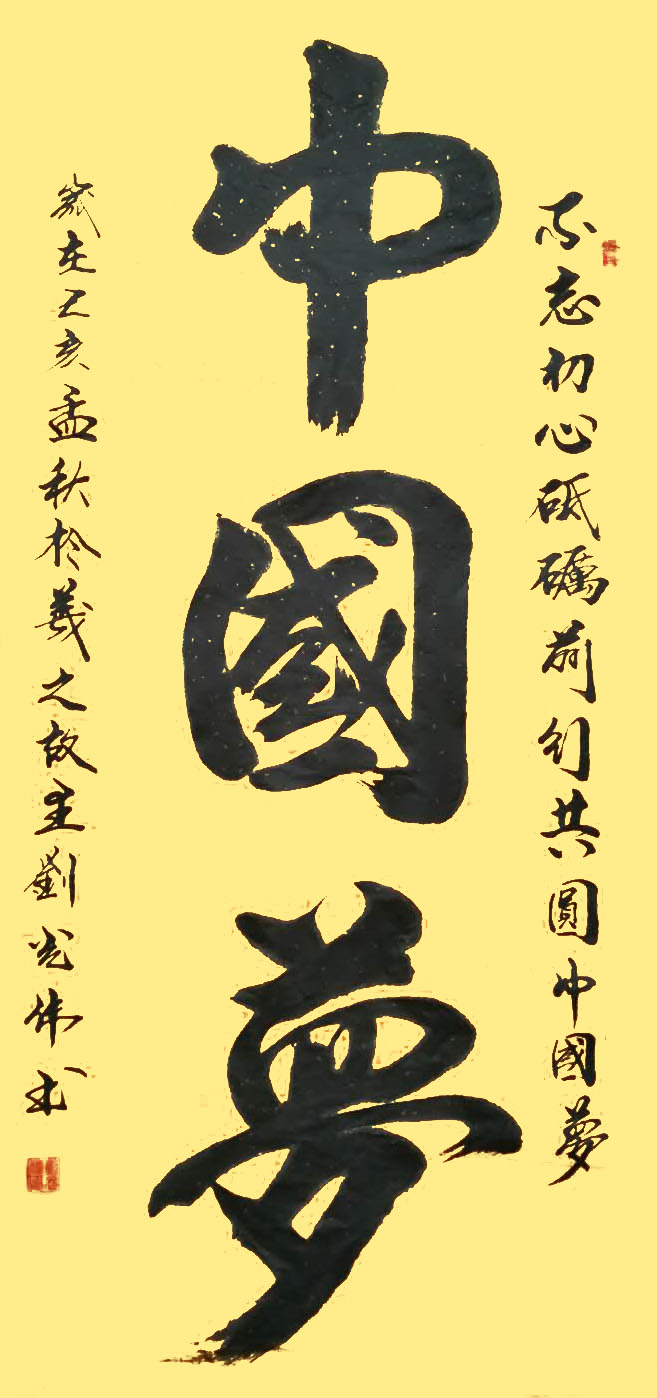 不忘初心砥礪前行共圓中國夢
中國夢
歲在己亥孟秋於羲之故里劉光偉书